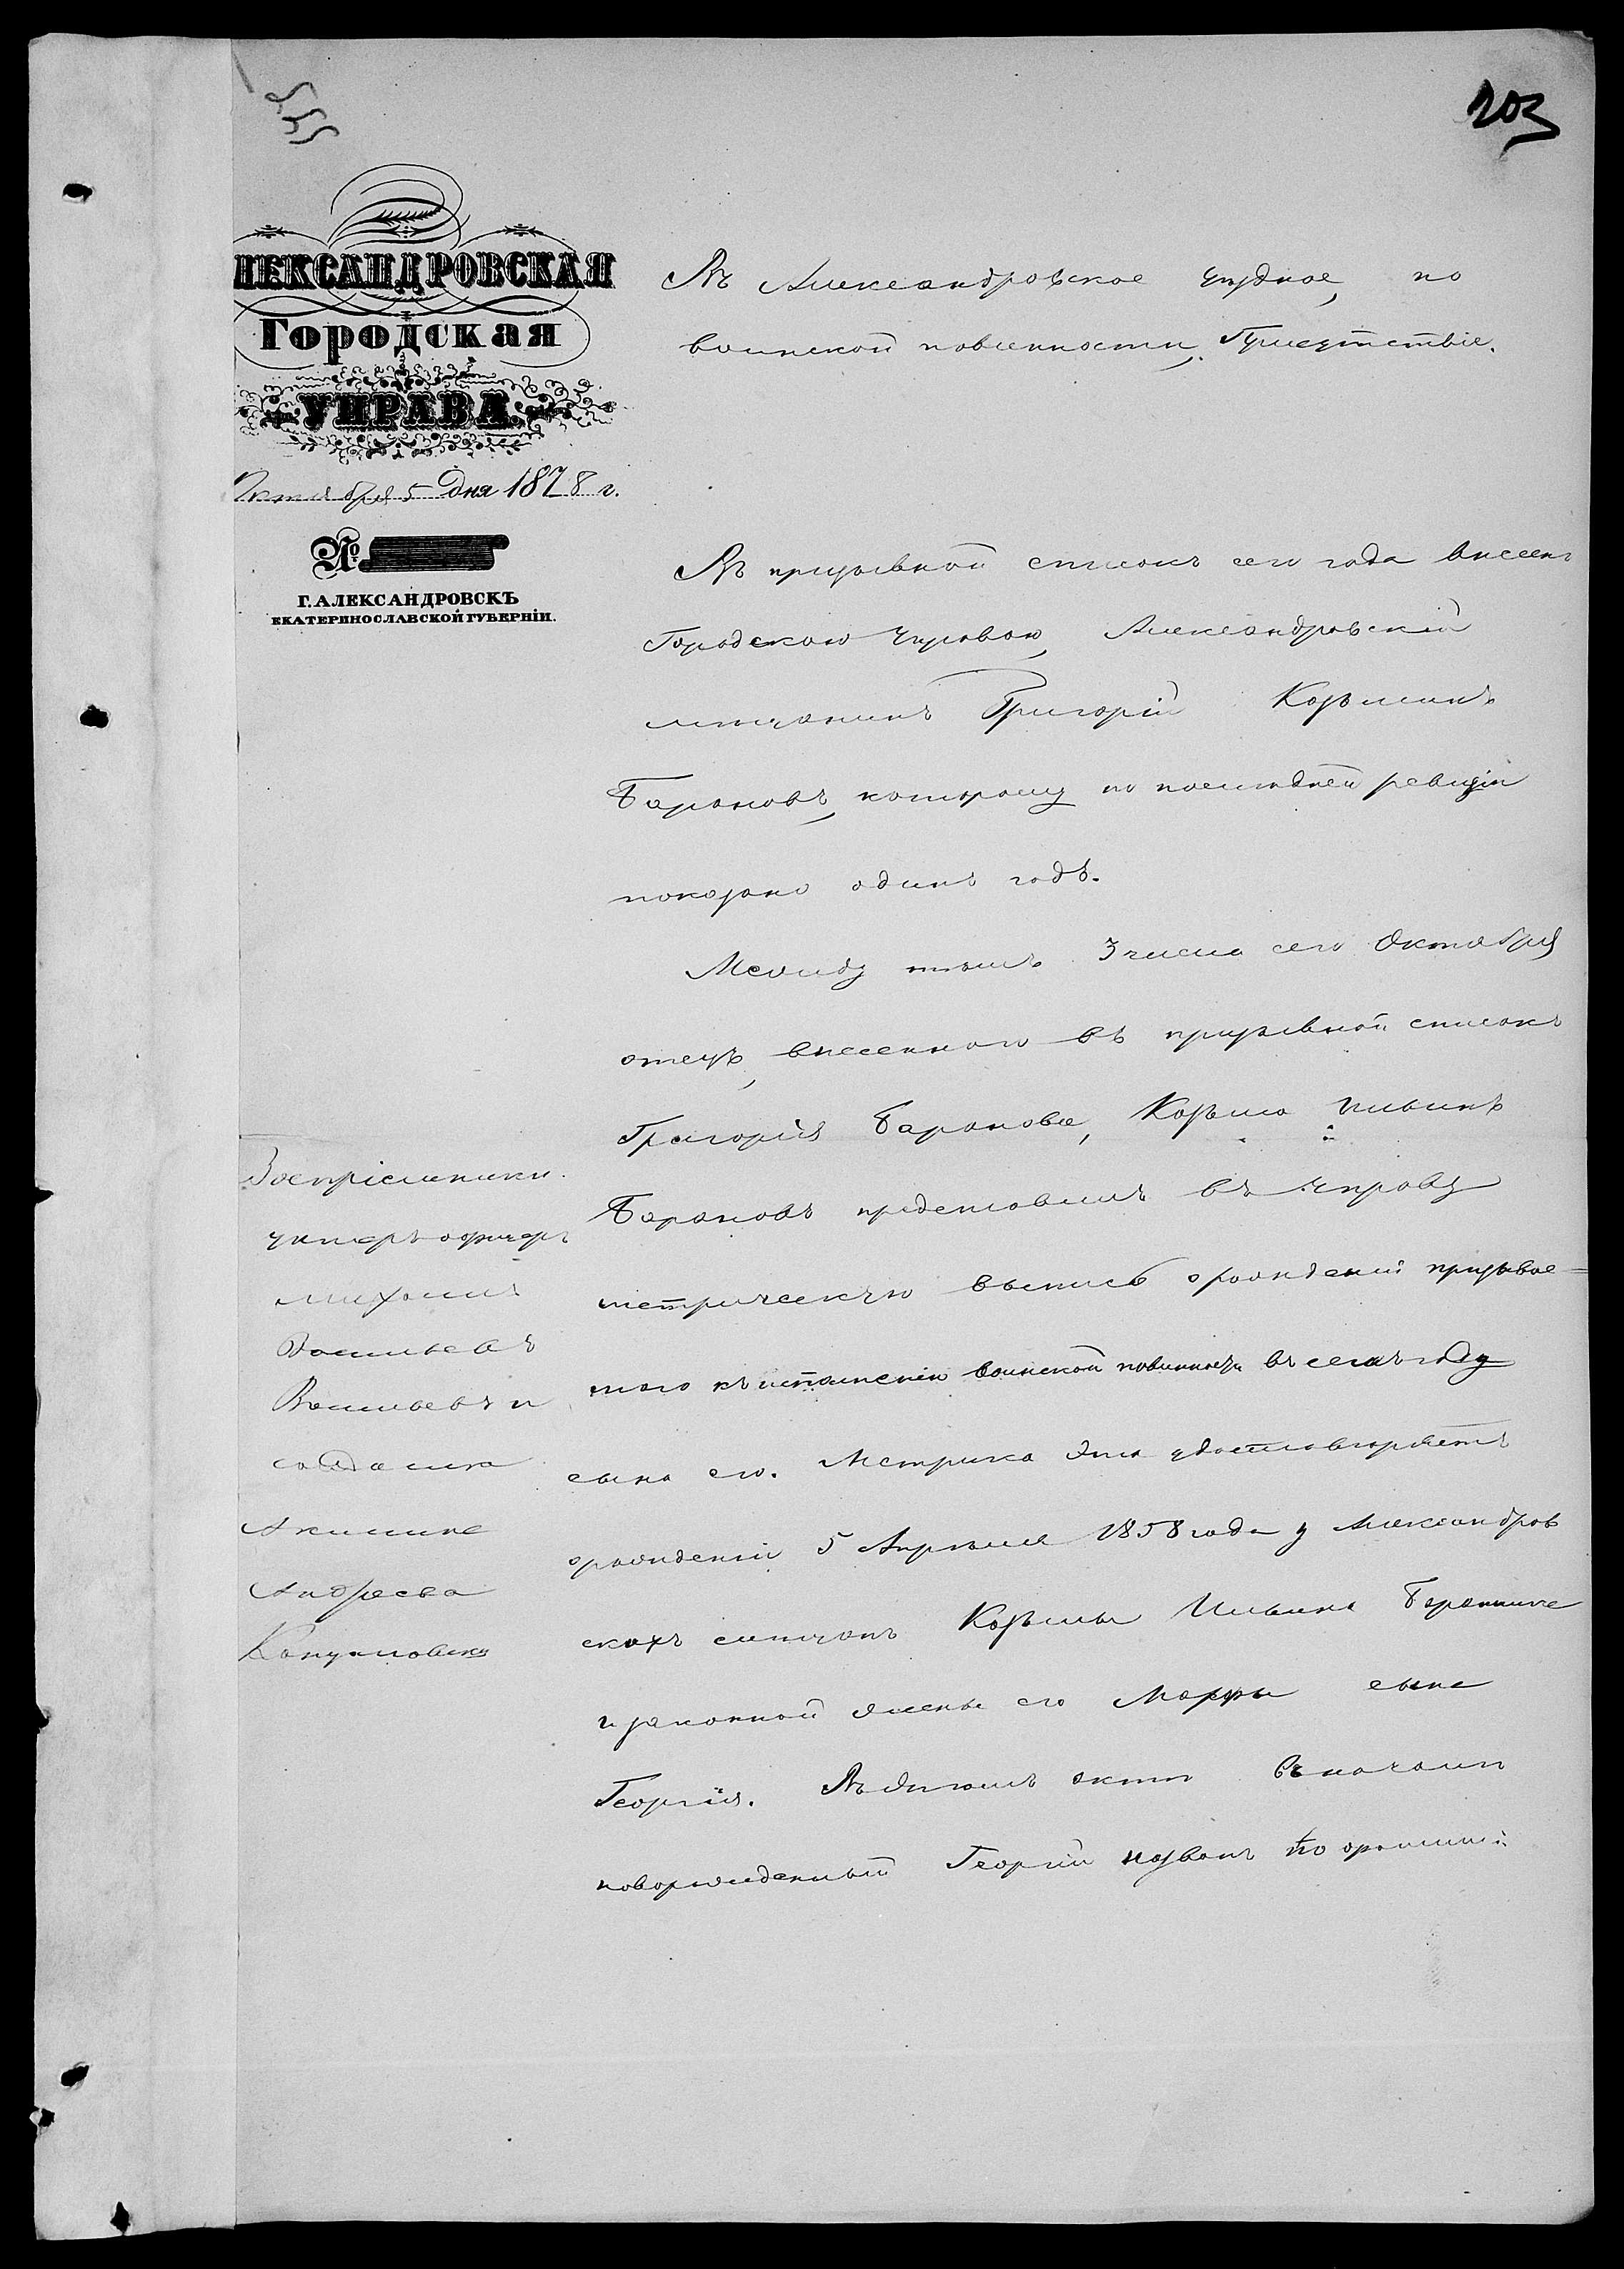 203
555
ЛЕКСАНДРОВСКАЯ
Городская
УПРАВА
Октября 5 дня 1878 г.
№
Г. АЛЕКСАНДРОВСКЪ
ЕКАТЕРИНОСЛАВСКОЙ ГУБЕРНІИ.
Въ Александровское уѣздное, по
воинской повинности, Присутствіе.
Въ призывной списокъ сего года внесенъ
Городскою Управою, Александровскій
мѣщанинъ Григорій Козьминъ
Барановъ, которому по послѣдней ревизіи
показано одинъ годъ.
Между тѣмъ 3 числа сего Октября
отецъ, внесеннаго въ призывной списокъ
Григорія Баранова, Козьма Ильинъ
Барановъ представилъ въ Управу
метрическую выпись о рожденіи призывае=
маго къ исполненію воинской повинности въ семъ году
сына его. Метрика эта удостовѣряетъ
о рожденіи 5 Апрѣля 1858 года у Александров
скихъ мѣщанъ Козьмы Ильина Баранника
и законной жены его Марфы сына
Георгія. Въ этомъ актѣ въ началѣ
новорожденный Георгій названъ по
Воспріемники
унтеръ-офицеръ
Михаилъ
Васильевъ
Васильевъ и
солдатка
Акилина
Андреева